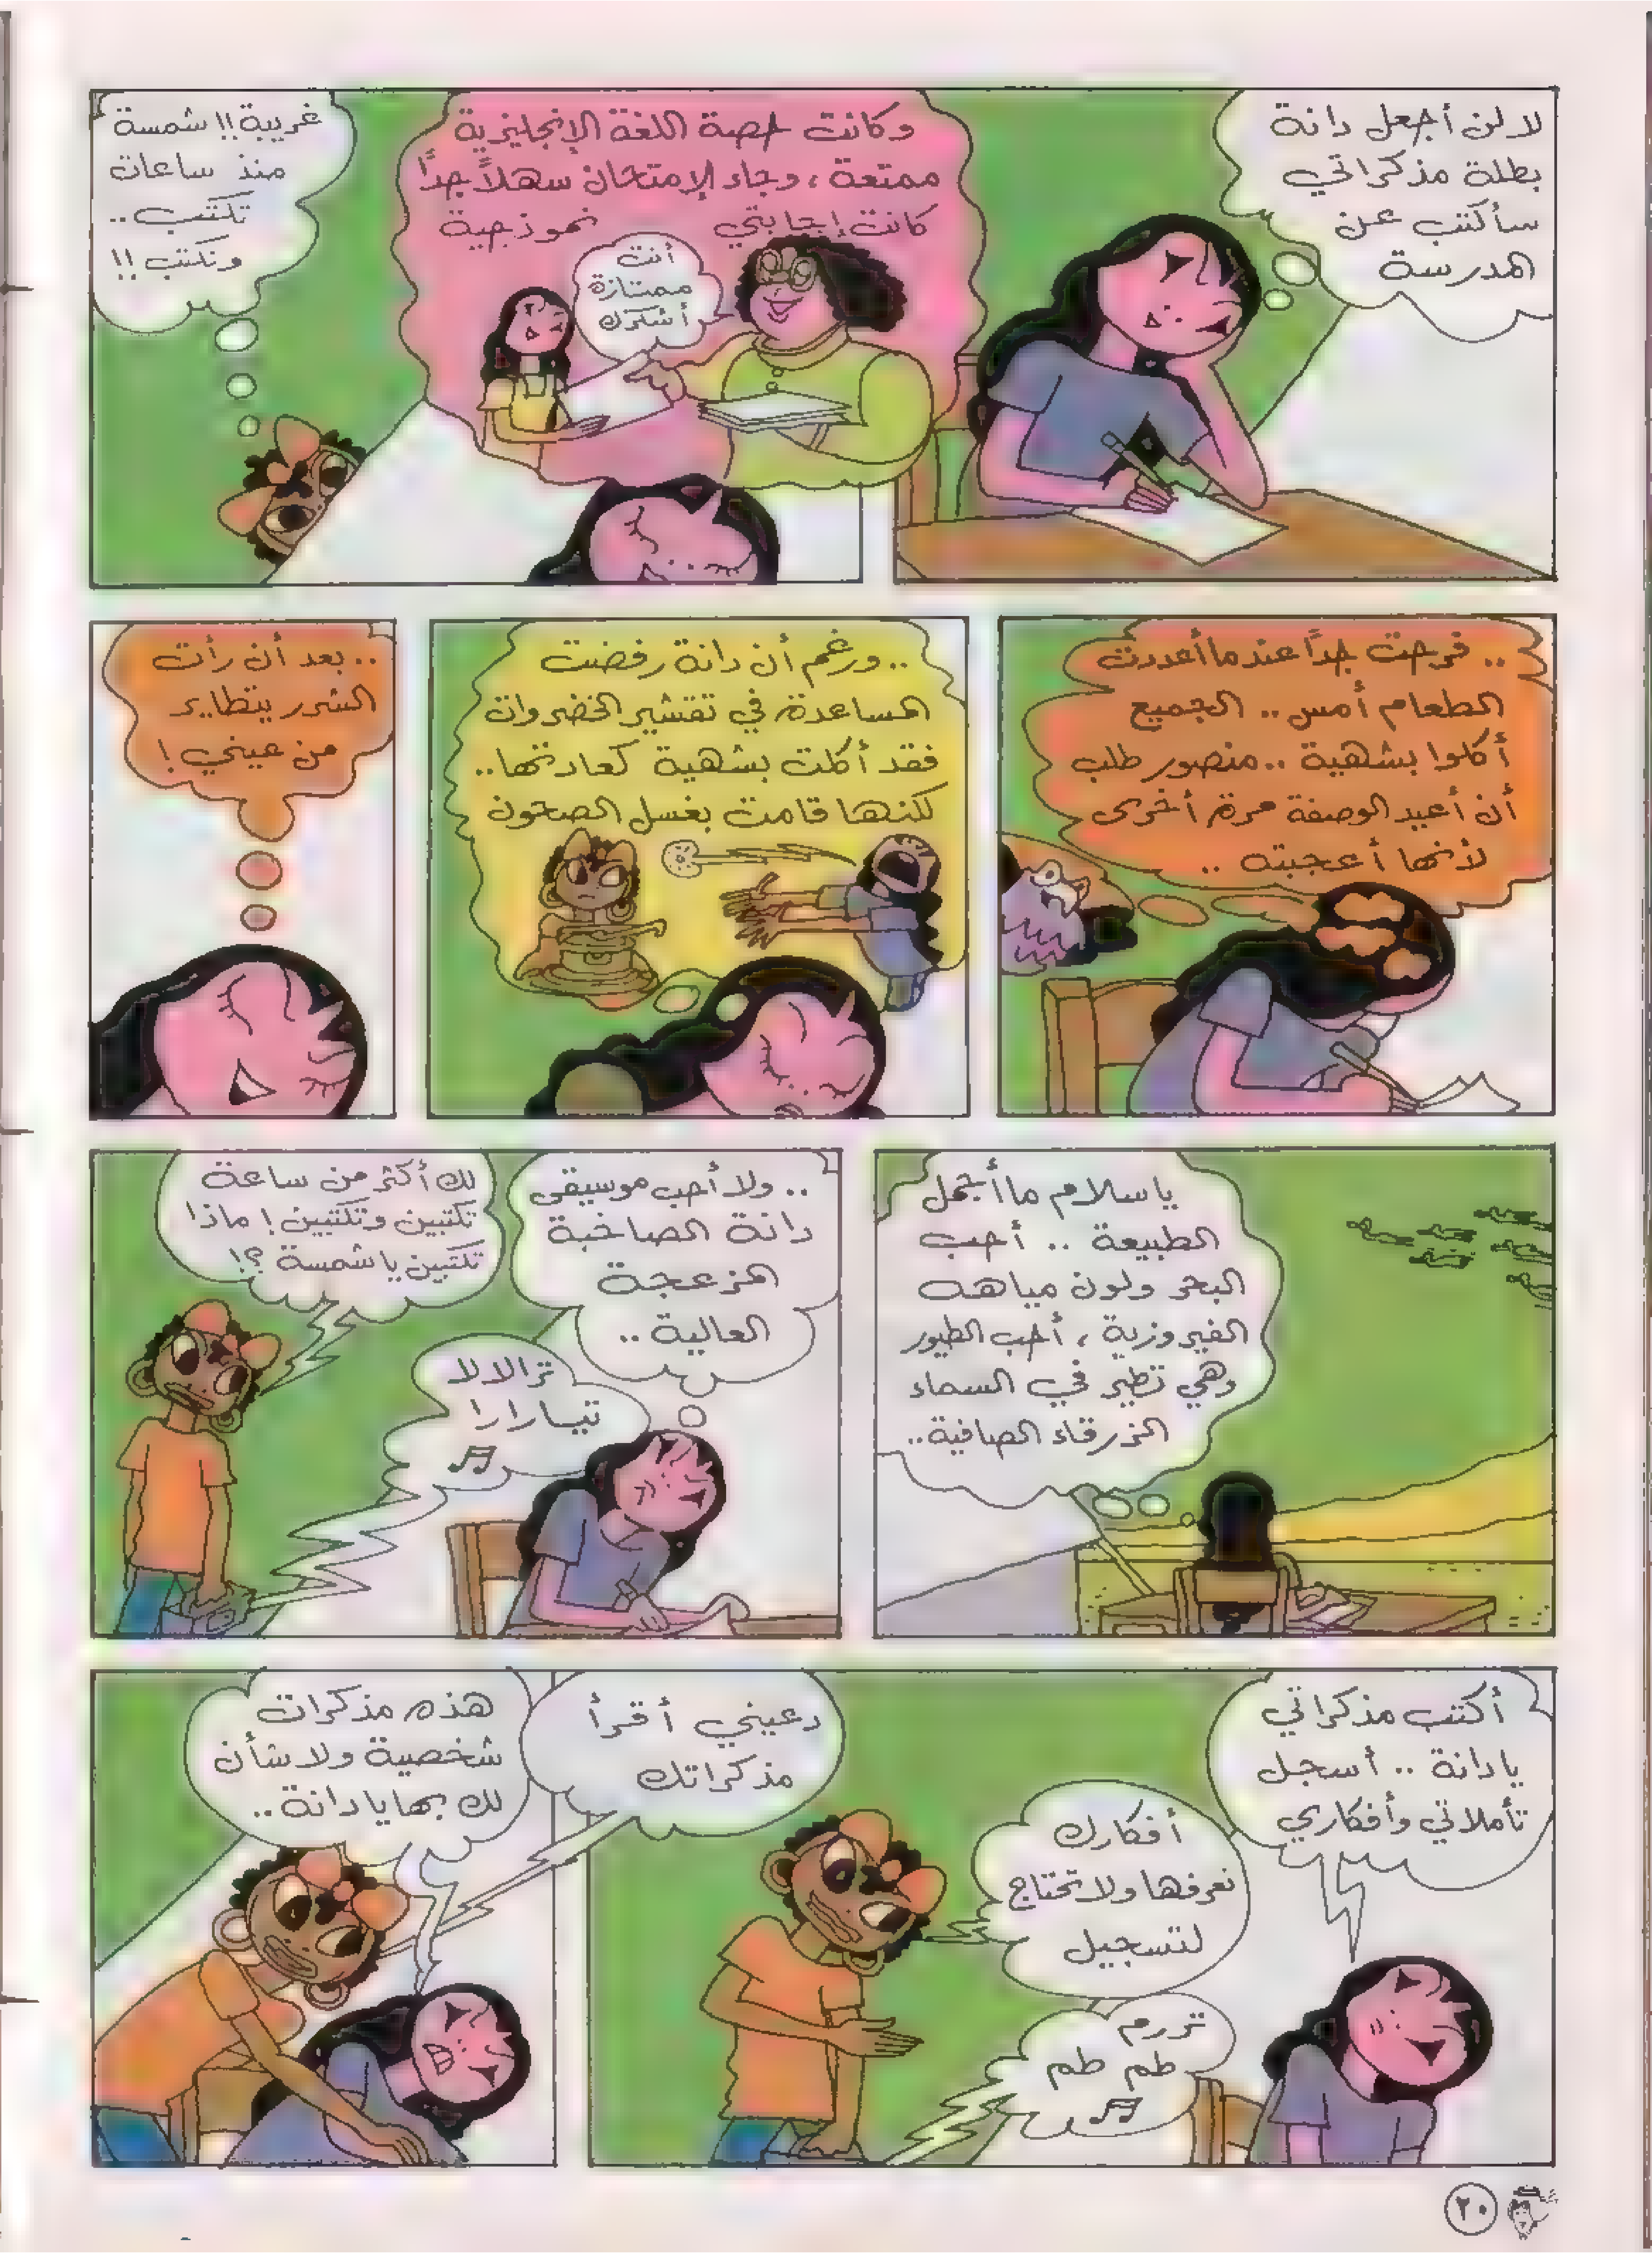 لا لن أجعل دانة
بطلة مذكراتي
سأكتب عن
المدرسة
وكانت حصة اللغة الإنجليزية
ممتعة ، وجاء الإمتحان سهلاً جداً
كانت إجابتي نموذجية
أنت
ممتازة
أشكرك
غريبة !! شمسة
منذ ساعات
تكتب ..
وتكتب !!
.. فرحت جداً عندما أعددت
الطعام أمس .. الجميع
أكلوا بشهية .. منصور طلب
أن أعيد الوصفة مرة أخرى
لأنها أعجبته ..
.. ورغم أن دانة رفضت
المساعدة في تقشير الخضروات
فقد أكلت بشهية كعادتها ..
لكنها قامت بغسل الصحون
.. بعد أن رأت
الشرر يتطاير
من عيني !
يا سلام ما أجمل
الطبيعة .. أحب
البحر ولون مياهه
الفيروزية ، أحب الطيور
وهي تطير في السماء
الزرقاء الصافية ..
.. ولا أحب موسيقى
دانة الصاخبة
المزعجة
العالية ..
ترالالا
تيارارا
لك أكثر من ساعة
تكتبين وتكتبين ! ماذا
تكتبين يا شمسة ؟!
أكتب مذكراتي
يا دانة .. أسجل
تأملاتي وأفكاري
أفكارك
نعرفها ولا تحتاج
لتسجيل
تررم
طم طم
دعيني أقرأ
مذكراتك
هذه مذكرات
شخصية ولا شأن
لك بها يا دانة ..
٢٠